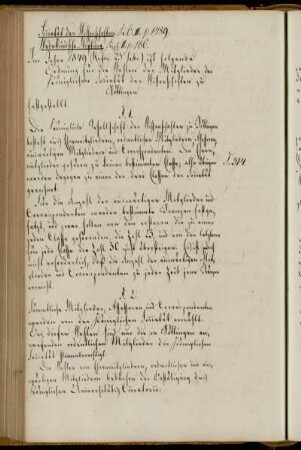 Societät der Wissenschaften Tit. II. p. 1789.
Im Jahre 1840 ist folgende
Ordnung für die Wahlen der Mitglieder der
Königlichen Societät der Wissenschaften zu
Göttingen
festgestellt
§. 1.
Die Königliche Gesellschaft der Wissenschaften zu Göttingen
besteht aus Ehrenmitgliedern, ordentlichen Mitgliedern, Assessoren,
auswärtigen Mitgliedern und Correspondenten. Die Ehren-
mitglieder gehören zu keiner bestimmten Classe, alle übrigen
werden dagegen zu einer der drei Classen der Societät
gerechnet.
Für die Anzahl der auswärtigen Mitglieder und
Correspondenten werden bestimmte Grenzen festge-
setzt, und zwar sollen von den ersteren die zu einer
jeden Classe gehörenden, die Zahl 12 und von den letztern
für jede Classe die Zahl 36 nicht übersteigen
nicht erforderlich, daß die Anzahl der auswärtigen Mit-
glieder und Correspondenten zu jeder Zeit
§. 2.
Sämmtliche Mitglieder, Assessoren und Correspondenten
werden von der Königlichen Societät erwählt.
Bei diesen Wahlen sind nur die in Göttingen an-
wesenden ordentlichen Mitglieder der Königlichen
Societät stimmberechtigt.
Die Wahlen von Ehrenmitgliedern, ordentlichen und aus-
wärtigen Mitgliedern bedürfen der Bestätigung des
Königlichen Universitäts-Curatorii.